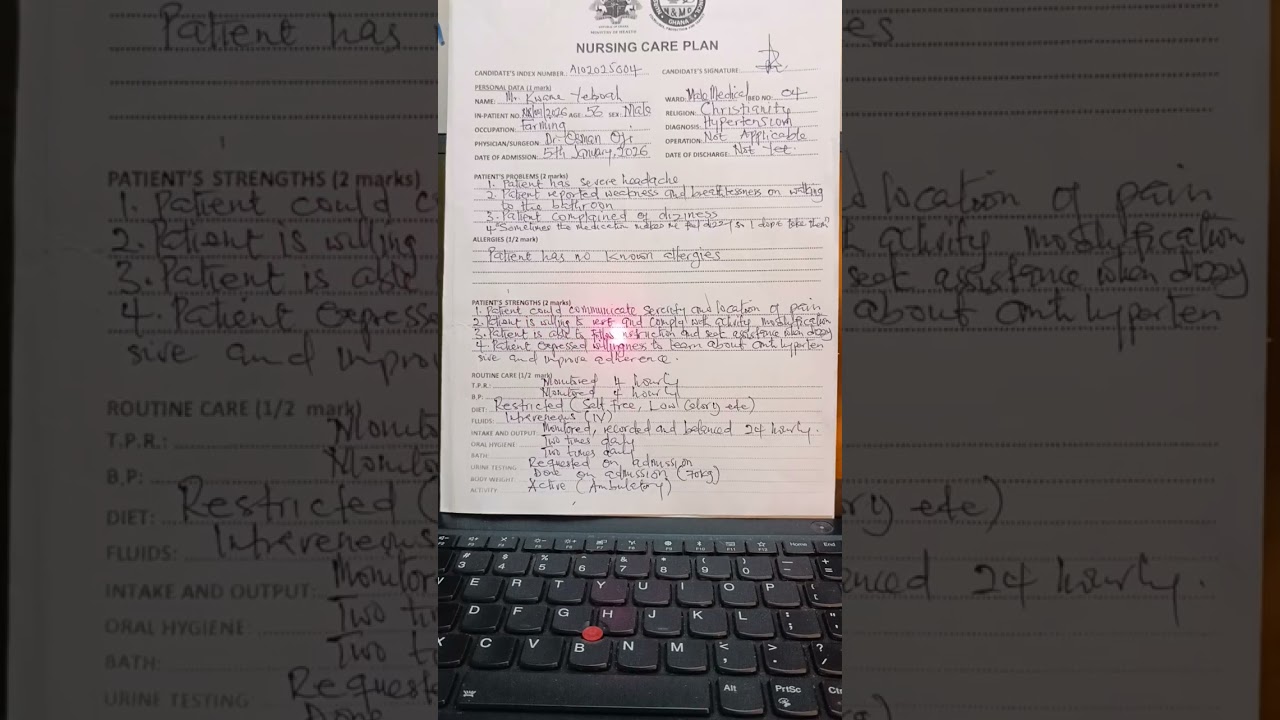 MINISTRY OF HEALTH
N & MC
GHANA
NURSING CARE PLAN
CANDIDATE'S INDEX NUMBER: A102025604 CANDIDATE'S SIGNATURE:
PERSONAL DATA (1 mark)
NAME: Mr. Kwame Yeboah WARD: Male Medical BED NO: 04
IN-PATIENT NO. /2026 AGE: 56 SEX: Male RELIGION: Christianity
OCCUPATION: Farming DIAGNOSIS: Hypertension
PHYSICIAN/SURGEON: Dr. Osman OPERATION: Not Applicable
DATE OF ADMISSION: 5th January, 2026 DATE OF DISCHARGE: Not Yet.
PATIENT'S PROBLEMS (2 marks)
1. Patient has severe headache
2. Patient reported weakness and breathlessness on walking
to the bathroom
3. Patient complained of diziness
4. "Sometimes the medication makes me feel dizzy so I don't take them"
ALLERGIES (1/2 mark)
Patient has no known allergies
PATIENT'S STRENGTHS (2 marks)
1. Patient could communicate severity and location of pain
2. Patient is willing to rest and comply with activity modification
3. Patient is able to instruction and seek assistance when dizzy
4. Patient expressed willingness to learn about antihyperten
sive and improve adherence.
ROUTINE CARE (1/2 mark)
T.P.R.: Monitored 4 hourly
B.P: Monitored 4 hourly
DIET: Restricted (Salt free, Low Calory etc)
FLUIDS: Intraveneous (IV)
INTAKE AND OUTPUT: Monitored, recorded and balanced 24 hourly.
ORAL HYGIENE: Two times daily
BATH: Two times daily
URINE TESTING: Requested on admission
BODY WEIGHT: Done on admission (70kg)
ACTIVITY Active (Ambulatory)